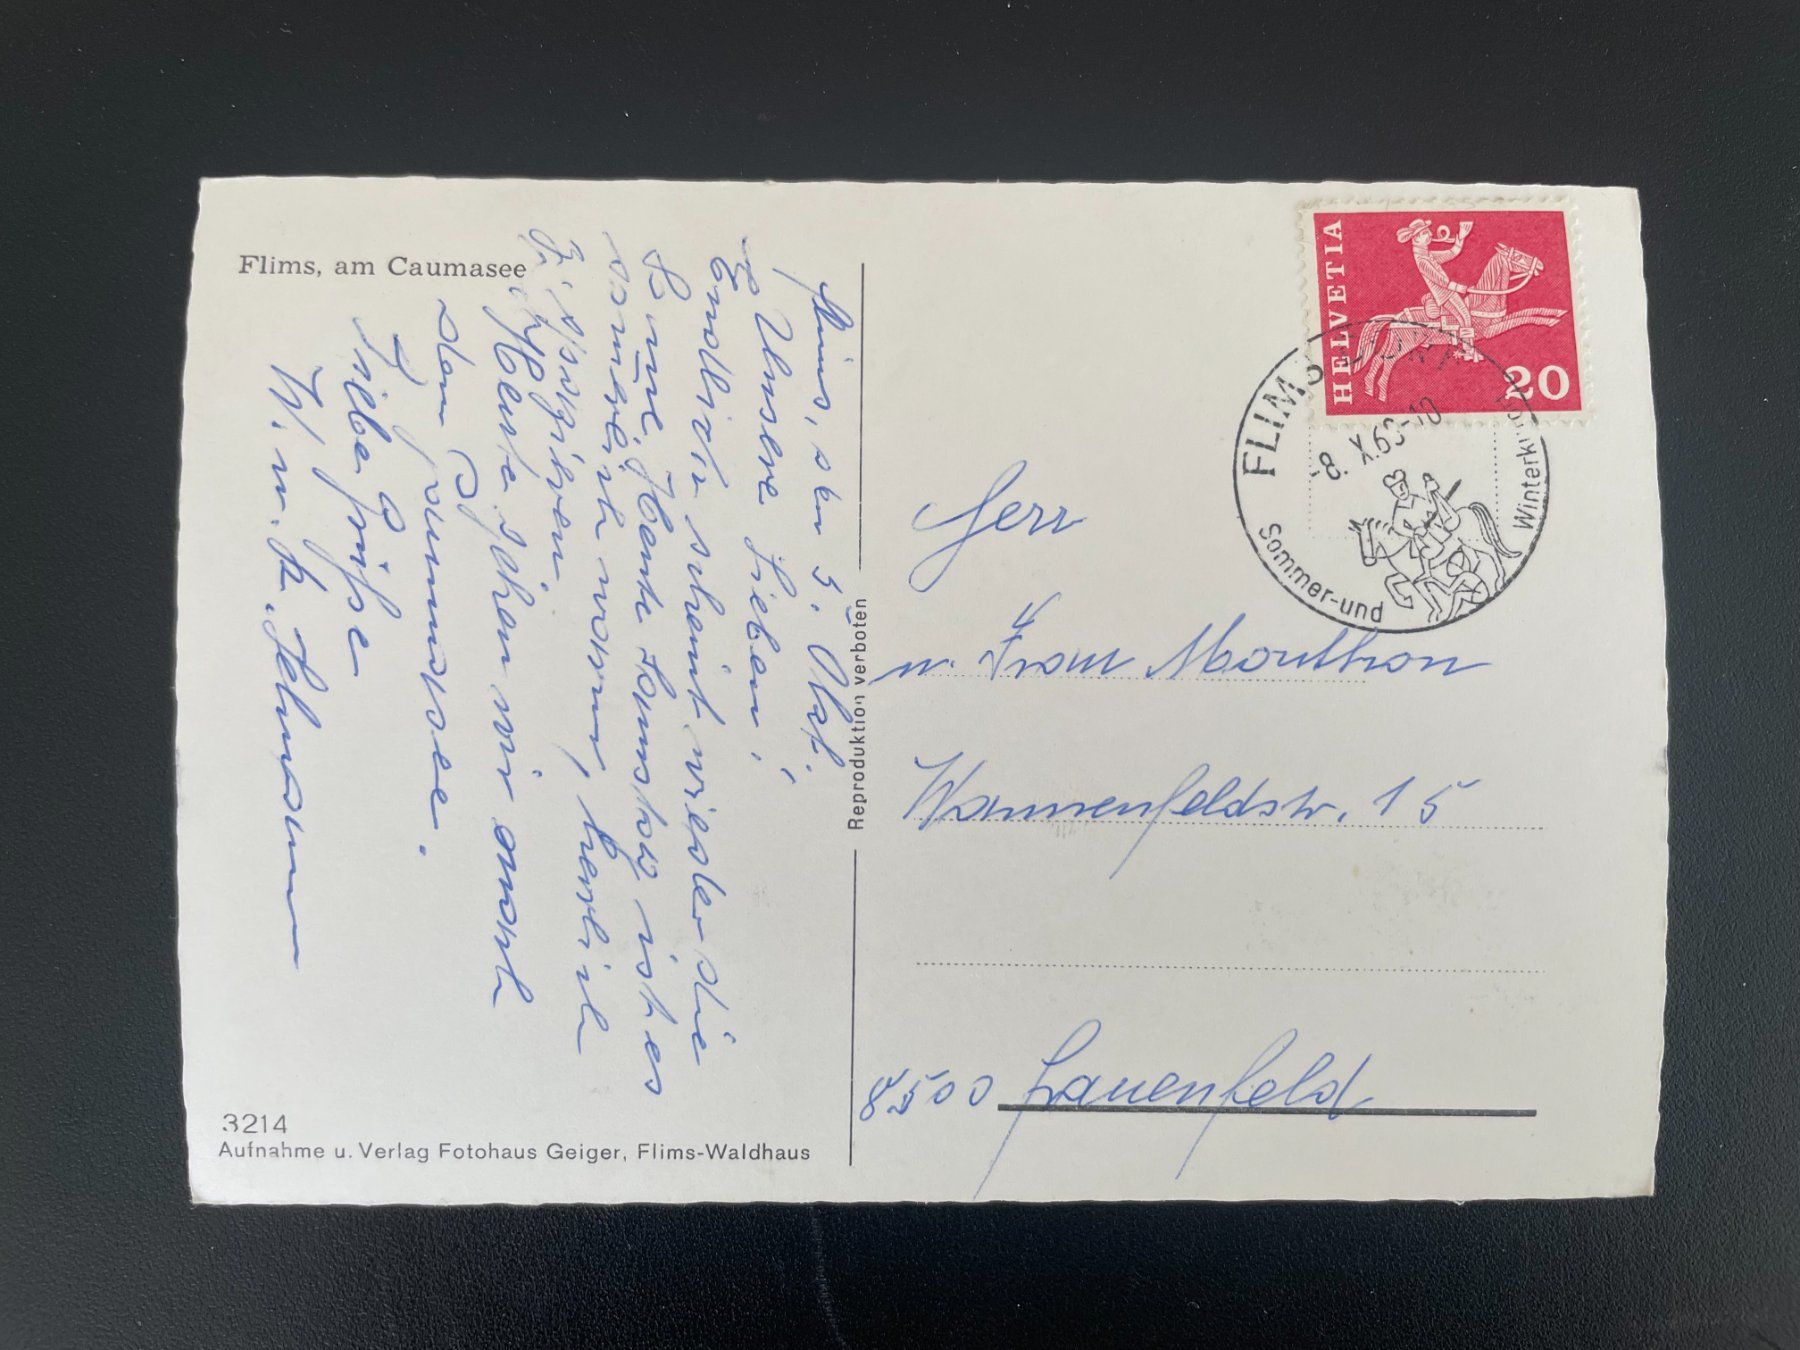 Flims, am Caumasee
Flims, den 5. Okt.
Unsere Lieben!
Endlich scheint wieder die
Sonne, Heute Samstag ist es
ziemlich warm, herrlich
z. spazieren.
Heute gehen wir auch
den Caumasee.
Liebe Grüsse
W. u. K. Lehmann
3214
Aufnahme u. Verlag Fotohaus Geiger, Flims-Waldhaus
Reproduktion verboten
HELVETIA
20
FLIMS DORF
-8. X.63-10
Sommer-und
Winterkurort
Herr
u. Frau Mouthon
Wannenfeldstr. 15
8500 Frauenfeld